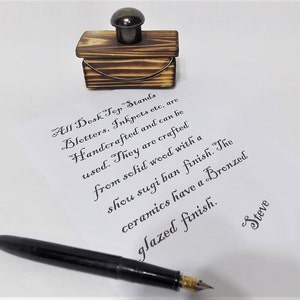 All Desk Top Stands
Blotters, Inkpots etc, are
Handcrafted and can be
used. They are crafted
from solid wood with a
shou sugi ban finish. The
ceramics have a Bronzed
glazed finish.
Steve